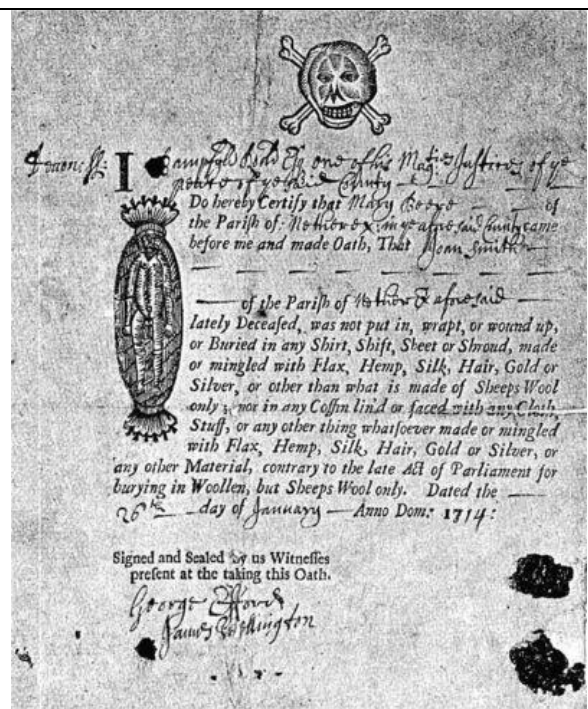 Devon ss: I Bampfyld Rodd Esq one of his Maties Justices of ye
peace of ye said County
Do hereby Certify that Mary Beere of
the Parish of Nether Ex in ye aforesaid County came
before me and made Oath, That Joan Smith
of the Parish of Nether Ex aforesaid
lately Deceased, was not put in, wrapt, or wound up,
or Buried in any Shirt, Shift, Sheet or Shroud, made
or mingled with Flax, Hemp, Silk, Hair, Gold or
Silver, or other than what is made of Sheeps Wool
only; nor in any Coffin lin'd or faced with any Cloth,
Stuff, or any other thing whatsoever made or mingled
with Flax, Hemp, Silk, Hair, Gold or Silver, or
any other Material, contrary to the late Act of Parliament for
burying in Woollen, but Sheeps Wool only. Dated the
26th day of January Anno Dom: 1714:
Signed and Sealed by us Witnesses
present at the taking this Oath.
George
James